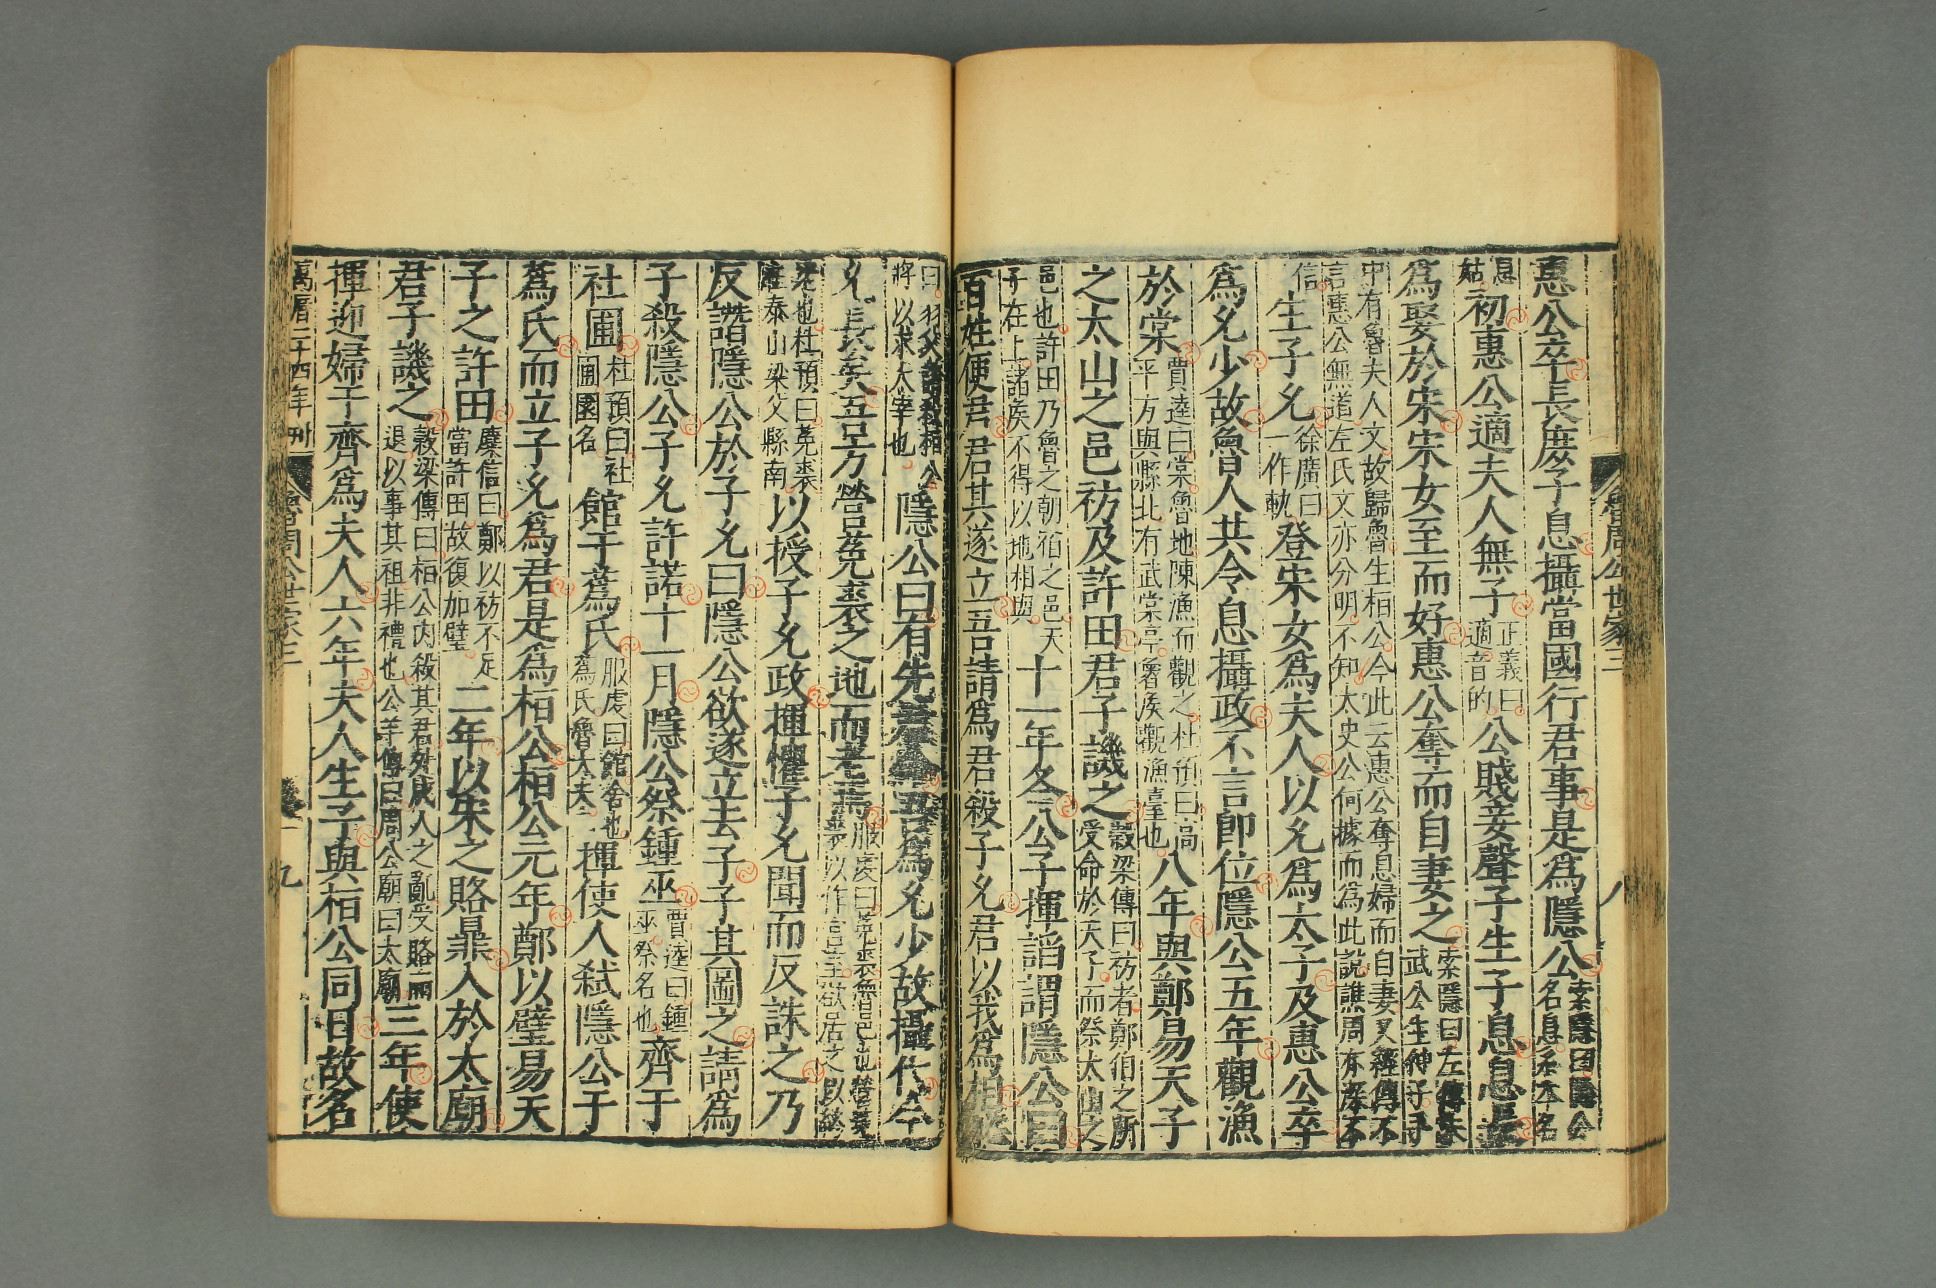 魯周公世家三
八
惠公卒長庶子息攝當國行君事是爲隱公索隱曰隱公名息系本名
息姑初惠公適夫人無子正義曰適音的公賤妾聲子生子息息長
爲娶於宋宋女至而好惠公奪而自妻之索隱曰左傳宋武公生仲子
中有魯夫人文故歸魯生桓公今此云惠公奪息婦而自妻又經傳不言惠公無道左氏文亦分明不知太史公何據而爲此說譙周
信生子允徐廣曰一作軌登宋女爲夫人以允爲太子及惠公卒
爲允少故魯人共令息攝政不言即位隱公五年觀漁
於棠賈逵曰棠魯地陳漁而觀之杜預曰高平方與縣北有武棠亭魯侯觀漁臺也八年與鄭易天子
之太山之邑祊及許田君子譏之穀梁傳曰祊者鄭伯之所受命於天子而祭太山之
邑也許田乃魯之朝宿之邑天子在上諸侯不得以地相與十一年冬公子揮諂謂隱公曰
百姓便君君其遂立吾請爲君殺子允君以我爲相
曰羽父請殺桓公將以求太宰也隱公曰有先君命吾爲允少故攝代今
允長矣吾方營菟裘之地而老焉服虔曰菟裘魯邑也營菟裘以作宮室欲居之以終
老也杜預曰菟裘在泰山梁父縣南以授子允政揮懼子允聞而反誅之乃
反譖隱公於子允曰隱公欲遂立去子子其圖之請爲
子殺隱公子允許諾十一月隱公祭鍾巫賈逵曰鍾巫祭名也齊于
社圃杜預曰社圃園名館于蔿氏服虔曰館舍也蔿氏魯大夫揮使人弒隱公于
蔿氏而立子允爲君是爲桓公桓公元年鄭以璧易天
子之許田麋信曰鄭以祊不足當許田故復加璧二年以宋之賂鼎入於太廟
君子譏之穀梁傳曰桓公內殺其君外成人之亂受賂而退以事其祖非禮也公羊傳曰周公廟曰太廟三年使
揮迎婦于齊爲夫人六年夫人生子與桓公同日故名
萬曆二十四年刊
魯周公世家三
九